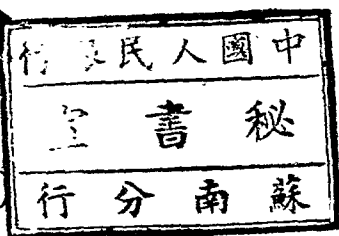 中國人民銀行
秘書室
蘇南分行